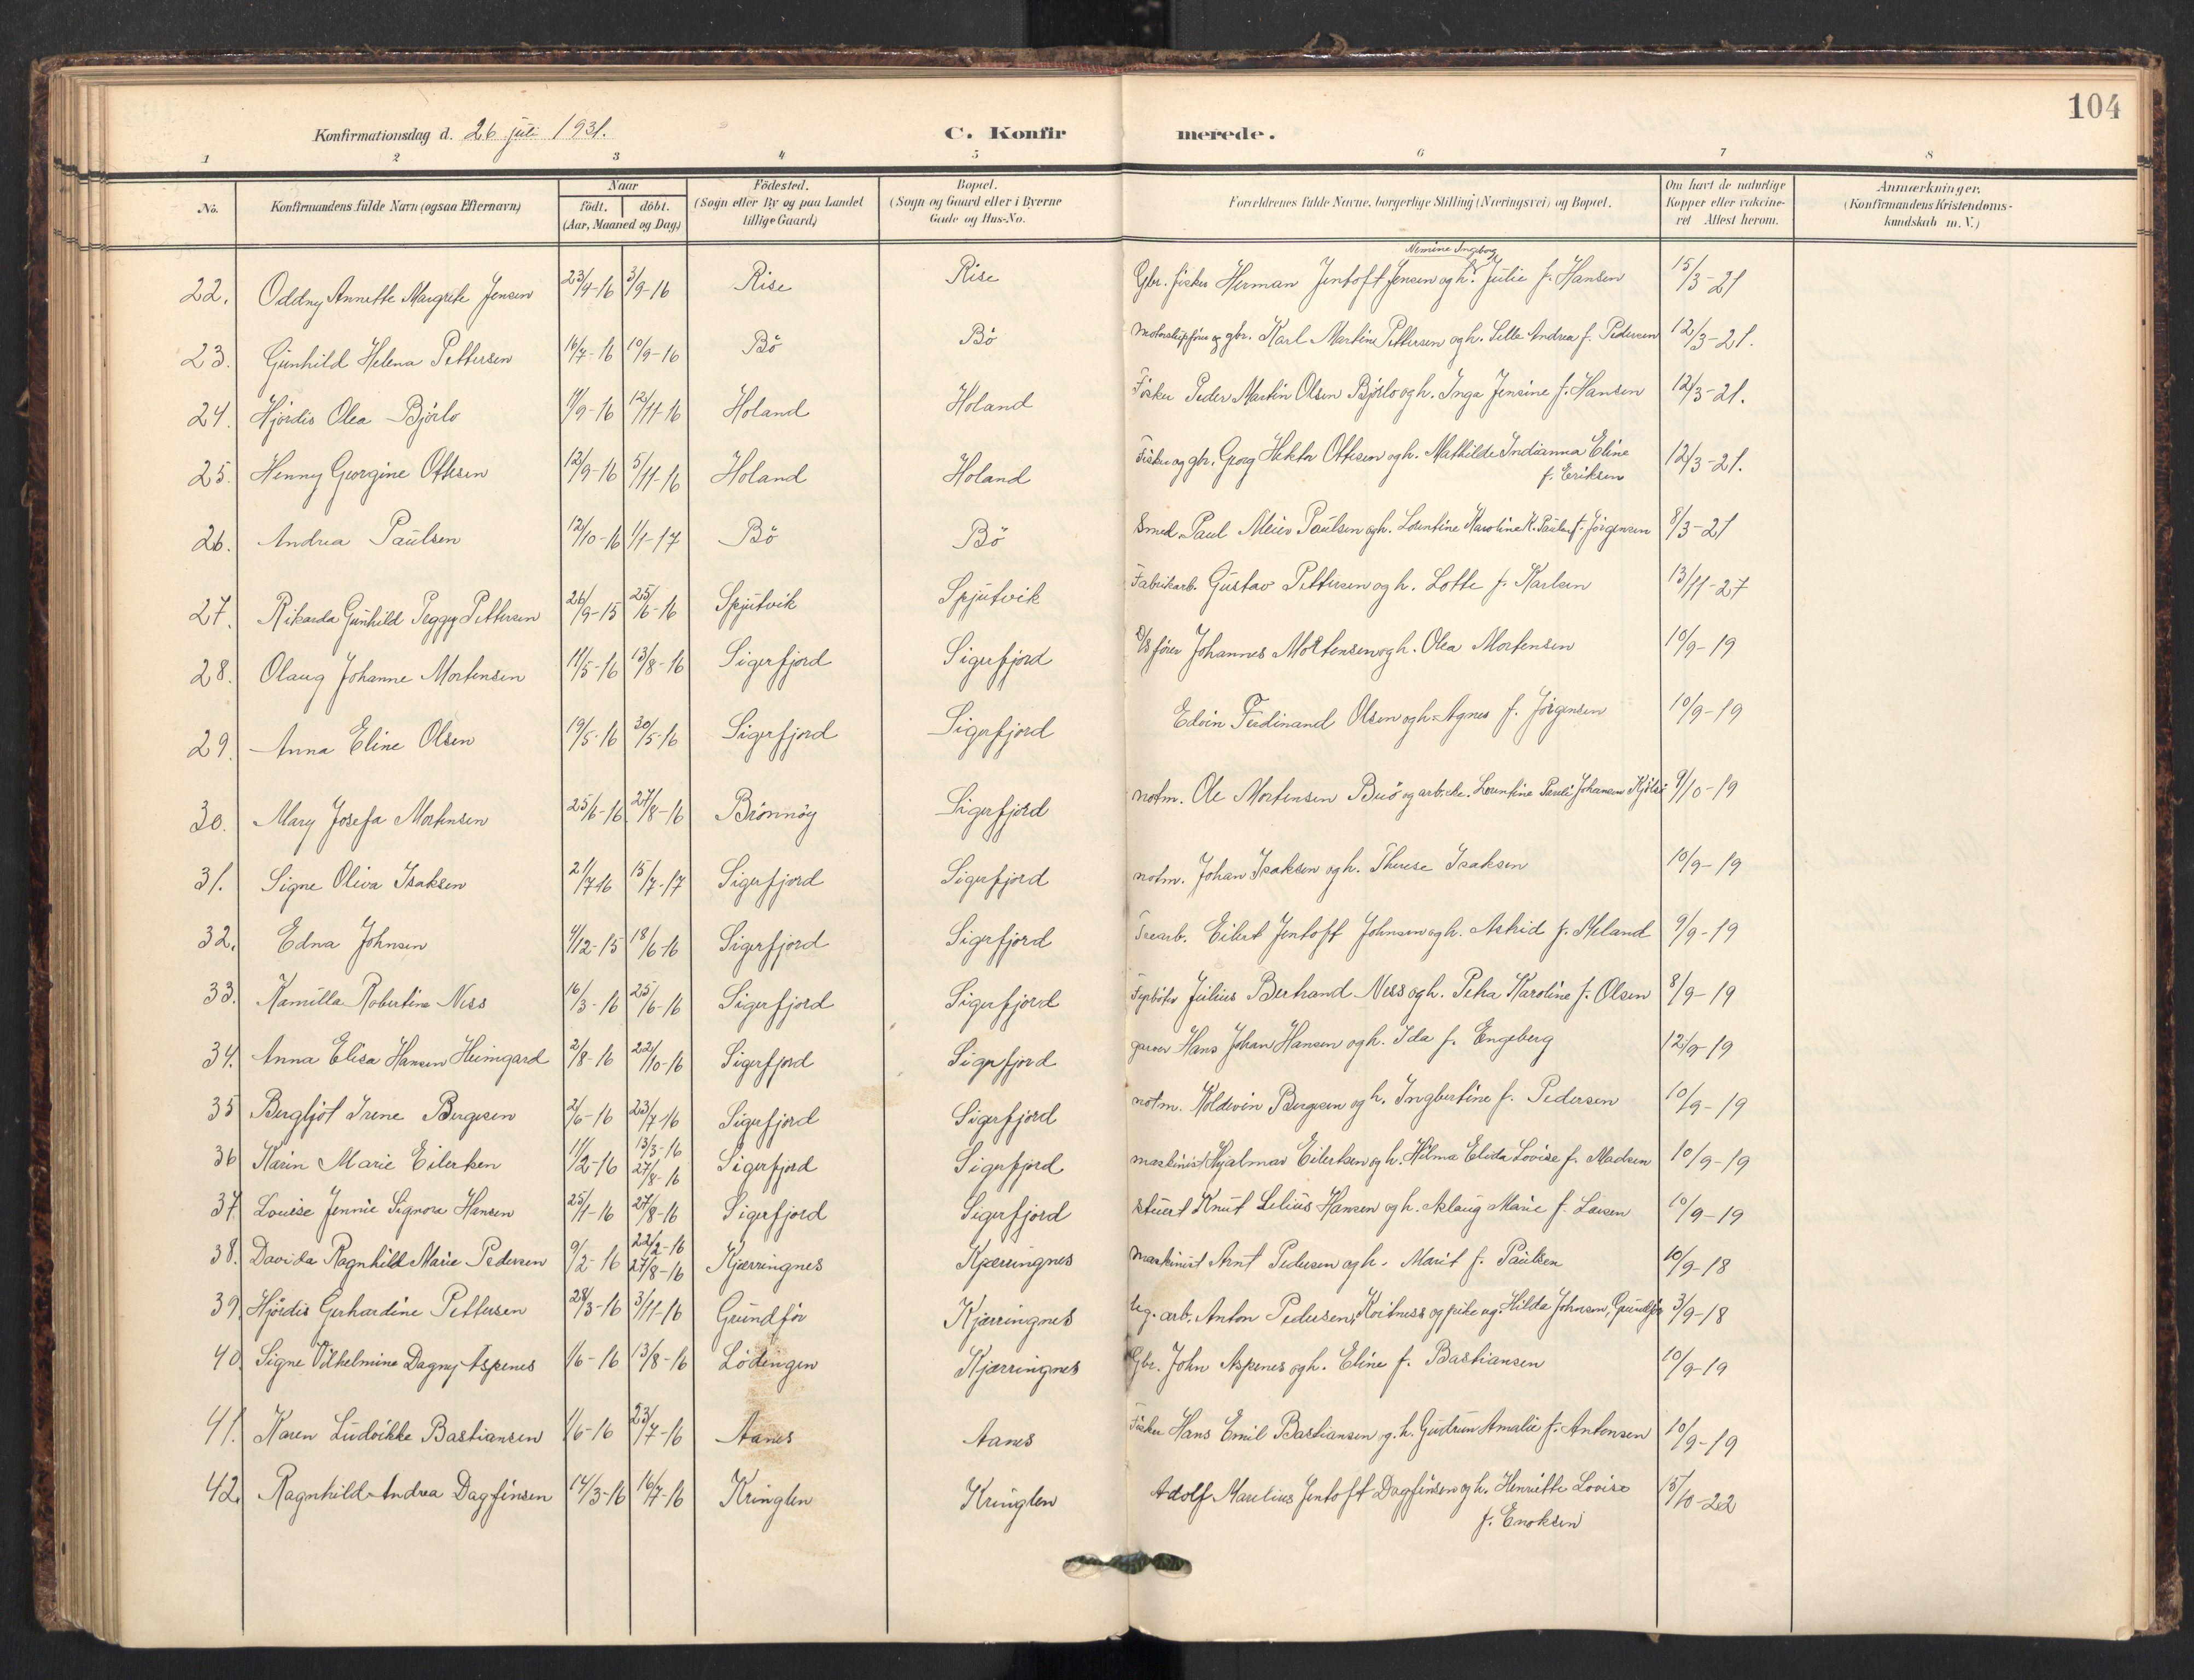 104
Konfirmationsdag d. 26 juli 1931.
C. Konfirmerede.
1 2 3 4 5 6 7 8
No. Konfirmandens fulde Navn (ogsaa Efternavn) Naar födt. döbt. (Aar, Maaned og Dag) Födested. (Sogn eller By og paa Landet tillige Gaard) Bopæl. (Sogn og Gaard eller i Byerne Gade og Hus-No. Forældrenes fulde Navne, borgerlige Stilling (Næringsvei) og Bopæl. Om havt de naturlige Kopper eller vakcineret Attest herom. Anmærkninger. (Konfirmandens Kristendomskundskab m. V.)
Nemine Ingeborg
22. Oddny Annette Margrete Jensen 23/4-16 3/9-16 Rise Rise Gbr. fisker Herman Jentoft Jensen og h. Julie f. Hansen 15/3-21
23. Gunhild Helena Pettersen 16/7-16 10/9-16 Bö Bö gbr. Karl Martin Pettersen og h. Andrea f. Pedersen 12/3-21.
24. Hjördis Olea Björlo 11/9-16 12/11-16 Holand Holand Fisker Peder Martin Olsen Björlo og h. Inga Jensine f. Hansen 12/3-21.
25. Henny Georgine Ottesen 12/9-16 5/11-16 Holand Holand Fisker og gbr. Georg Hektor Ottesen og h. Mathilde Indianna Eline 12/3-21.
f. Eriksen
26. Andrea Paulsen 12/10-16 1/1-17 Bö Bö Smed Paul Meier Paulsen og h. Lorentine Karoline K. f. Jörgensen 8/3-21
27. Rikarda Gunhild Peggy Pettersen 26/9-15 25/6-16 Spjutvik Spjutvik Fabrikarb. Gustav Pettersen og h. Lotte f. Karlsen 13/11-27
28. Olaug Johanne Mortensen 11/5-16 13/8-16 Sigerfjord Sigerfjord D/S förer Johannes Mortensen og h. Olea Mortensen 10/9-19
29. Anna Eline Olsen 19/5-16 30/5-16 Sigerfjord Sigerfjord Edvin Ferdinand Olsen og h. Agnes f. Jörgensen 10/9-19
30. Mary Josefa Mortensen 25/6-16 27/8-16 Brönnöy Sigerfjord notm. Ole Mortensen og arb.ske. Lorentine Johansen 9/10-19
31. Signe Oliva Isaksen 21/7 16 15/7-17 Sigerfjord Sigerfjord notm. Johan Isaksen og h. Therese Isaksen 10/9-19
32. Edna Johnsen 4/12-15 18/6-16 Sigerfjord Sigerfjord Trearb. Eilert Jentoft Johnsen og h. Astrid f. Meland 9/9-19
33. Kamilla Robertine Ness 16/3-16 25/6-16 Sigerfjord Sigerfjord Fyrböter Julius Bertrand Ness og h. Petra Karoline f. Olsen 8/9-19
34. Anna Elisa Hansen Heimgard 2/8-16 22/10-16 Sigerfjord Sigerfjord garver Hans Johan Hansen og h. Ida f. Engeberg 12/9-19
35 Bergljot Irene Bergesen 2/6-16 23/7 16 Sigerfjord Sigerfjord notm. Koldevin Bergesen og h. Ingbertine f. Pedersen 10/9-19
36 Karin Marie Eilertsen 11/2-16 13/3-16 27/8-16 Sigerfjord Sigerfjord maskinist Hjalmar Eilertsen og h. Hilma Elida Lovise f. Madsen 10/9-19
37. Louise Jennie Signora Hansen 25/1-16 27/8-16 Sigerfjord Sigerfjord stuert Knut Selius Hansen og h. Aslaug Marie f. Larsen 10/9-19
38. Davida Ragnhild Marie Pedersen 9/2-16 22/2-16 27/8-16 Kjærringnes Kjærringnes Maskinist Arnt Pedersen og h. Marit f. Paulsen 10/9-18
39. Hjördis Gerhardine Pettersen 28/3-16 3/11-16 Grundför Kjærringnes ug. arb. Anton Pedersen, og pike ug. Hilda Johnsen, Grundför 3/9-18
40. Signe Vilhelmine Dagny Aspenes 1/6-16 13/8-16 Lödingen Kjærringnes Gbr. John Aspenes og h. Eline f. Bastiansen 10/9-19
41. Karen Ludvikke Bastiansen 1/6-16 23/7-16 Aanes Aanes Fisker Hans Emil Bastiansen og h. Gudrun Amalie f. Antonsen 10/9-19
42. Ragnhild Andrea Dagfinsen 14/3-16 16/7-16 Kringlen Kringlen Adolf Marelius Jentoft Dagfinsen og h. Henriette Lovise 15/10-22
f. Enoksen